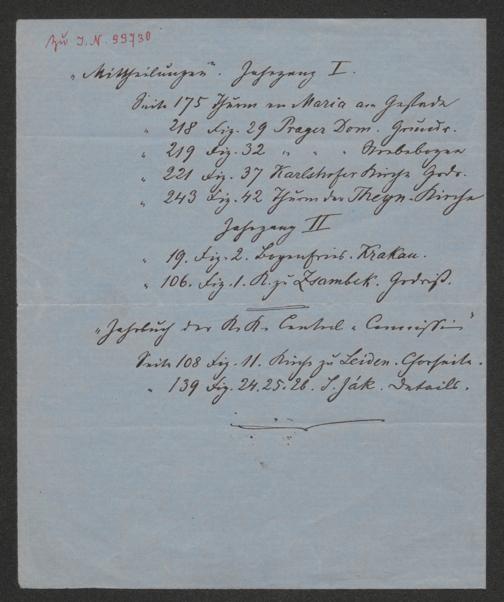 zu I.N. 99730
"Mittheilungen". Jahrgang I.
Seite 175 Thurm an Maria am Gestade
" 218 Fig. 29 Prager Dom. Grundr.
" 219 Fig. 32 " " Strebebogen
" 221 Fig. 37 Karlshofer Kirche Gdr.
" 243 Fig. 42 Thurm der Theyn-Kirche
Jahrgang II
" 19. Fig. 2. Bogenfries. Krakau.
" 106. Fig. 1. K. zu Zsambek. Grdriß.
"Jahrbuch der K. K. Central-Commission"
Seite 108 Fig. 11. Kirche zu Leiden. Chorseite.
" 139 Fig. 24. 25. 26. S. Ják. Details.